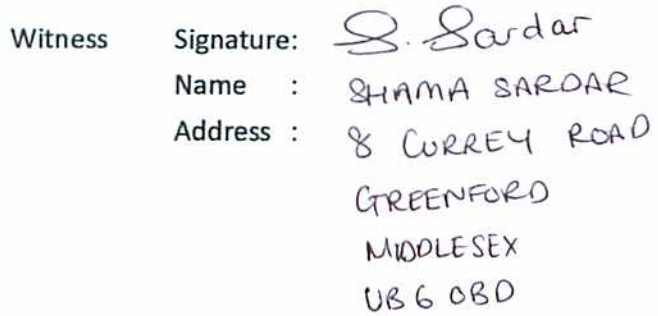 Witness Signature: S. Sardar
Name : SHAMA SARDAR
Address : 8 CURREY ROAD
GREENFORD
MIDDLESEX
UB6 0BD